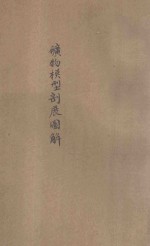 礦物模型剖展圖解